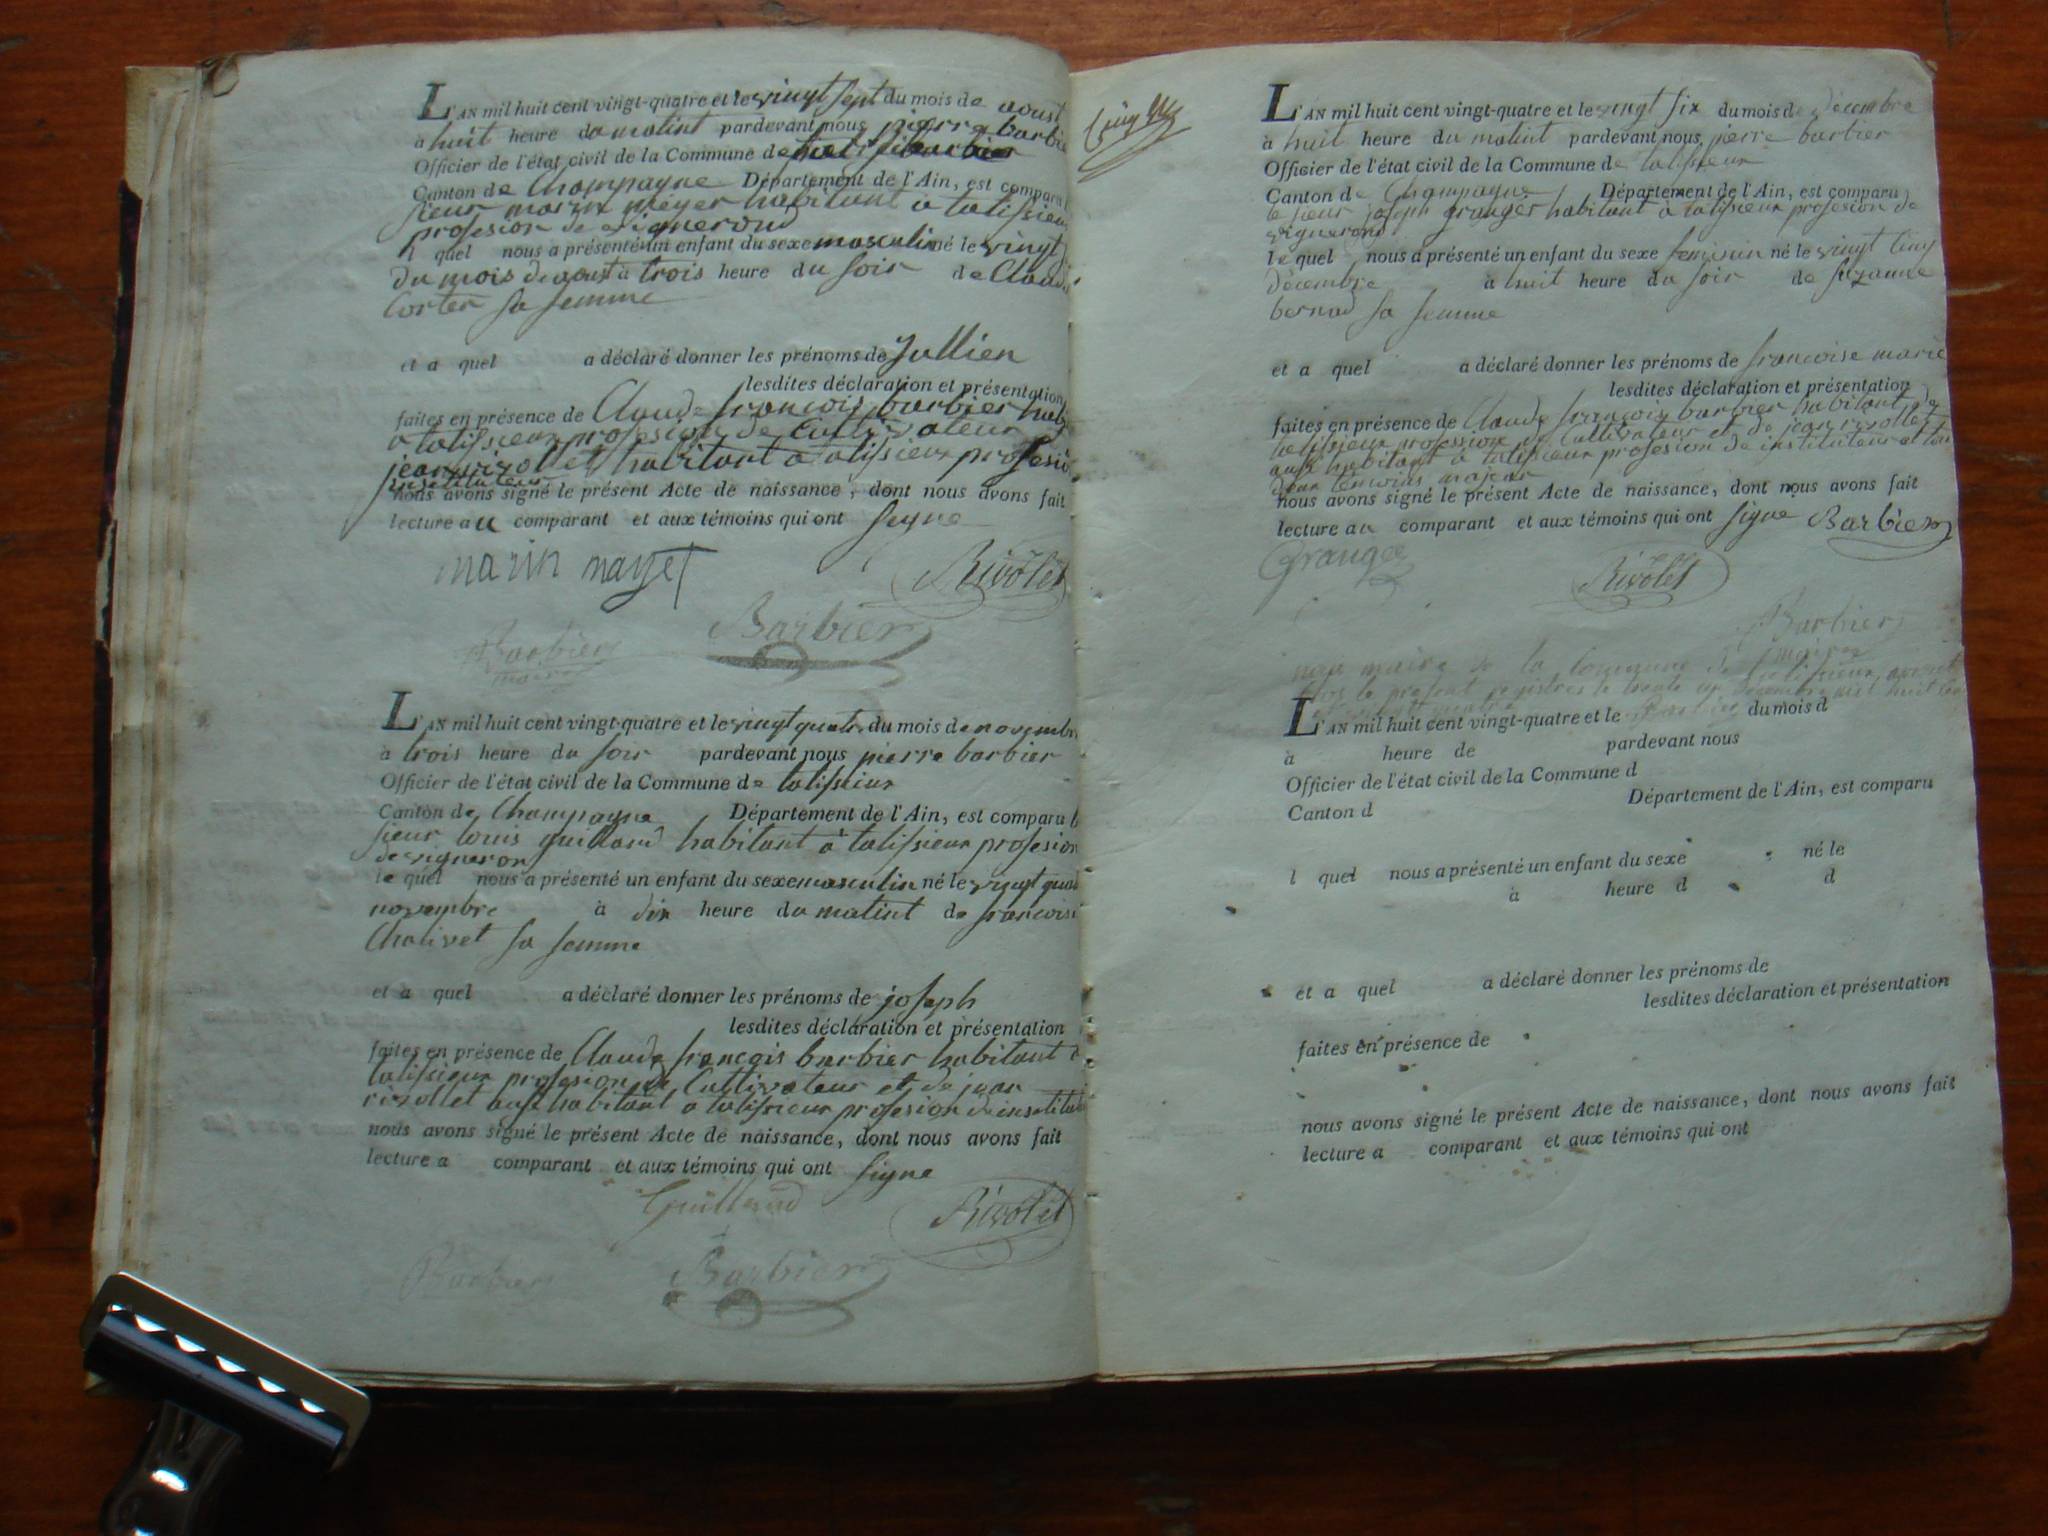 L'AN mil huit cent vingt-quatre et le vingt sept du mois de aoust
à huit heure du matint pardevant nous pierre barbie
Officier de l'état civil de la Commune de
Canton de Champagne Département de l'Ain, est comparu l
sieur marin meyer habitant a talissieux
profesion de vigneroud
l quel nous a présenté un enfant du sexe masculin né le vingt
du mois de aoust à trois heure du soir de Claud
Corter sa femme
et a quel a déclaré donner les prénoms de Jullien
lesdites déclaration et présentation
faites en présence de Claude francois barbier habi
a talissieux profesion de Cultivateur
jean rivollet habitant a talissieux profesio
instituteur
nous avons signé le présent Acte de naissance, dont nous avons fait
lecture au comparant et aux témoins qui ont signe
marin mayet Rivôlet
Barbier Barbier
maire
L'AN mil huit cent vingt-quatre et le vingt quatr du mois de novembr
à trois heure du soir pardevant nous pierre barbier
Officier de l'état civil de la Commune de talissieux
Canton de Champagne Département de l'Ain, est comparu l
sieur louis guilland habitant a talissieux profesion
de vigneron
le quel nous a présenté un enfant du sexe masculin né le vingt quat
novembre à dix heure du matint de francoise
Chalivet sa femme
et a quel a déclaré donner les prénoms de joseph
lesdites déclaration et présentation
faites en présence de Claude francois barbier habitant a
talissieux profesion de Cultivateur et de jean
rivollet ausi habitant a talissieux profesion de instituteu
nous avons signé le présent Acte de naissance, dont nous avons fait
lecture a comparant et aux témoins qui ont signe
Guilland Rivolet
Barbier Barbier
L'AN mil huit cent vingt-quatre et le vingt six du mois de décembre
à huit heure du matint pardevant nous pierre barbier
Officier de l'état civil de la Commune de talissieux
Canton de Champagne Département de l'Ain, est comparu
le sieur joseph granger habitant a talissieux profesion de
vigneroud
le quel nous a présenté un enfant du sexe feminin né le vingt Cinq
décembre à huit heure du soir de suzanne
bernad sa femme
et a quel a déclaré donner les prénoms de francoise marie
lesdites déclaration et présentation
faites en présence de Claude françois barbier habitant de
talissieux profession de Cultivateur et de jean rivollet
ausi habitant a talissieux profesion de instituteur et tou
deux temoins majeur
nous avons signé le présent Acte de naissance, dont nous avons fait
lecture au comparant et aux témoins qui ont signe Barbier
Grangé Rivôlet
Barbier
maire
nou maire de la Commune de talissieux avont
Clos le present registres le trente un decembre mil huit Cen
L'AN mil huit cent vingt-quatre et le du mois d
à heure de pardevant nous
Officier de l'état civil de la Commune d
Canton d Département de l'Ain, est comparu
l quel nous a présenté un enfant du sexe né le
à heure d d
et a quel a déclaré donner les prénoms de
lesdites déclaration et présentation
faites en présence de
nous avons signé le présent Acte de naissance, dont nous avons fait
lecture a comparant et aux témoins qui ont